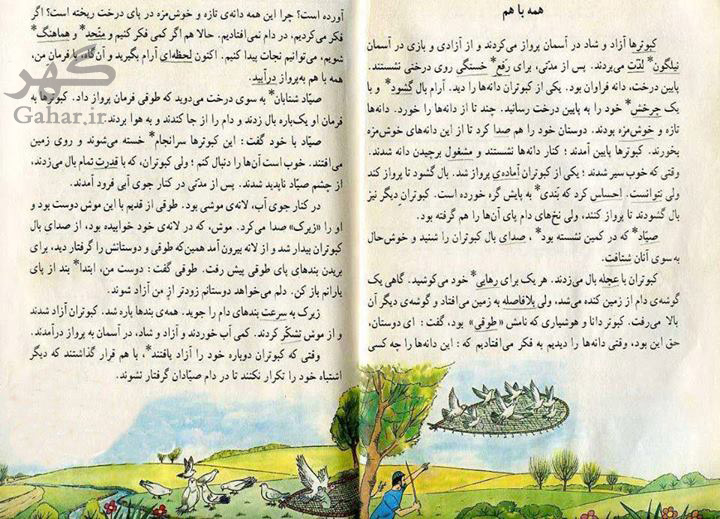 همه با هم
کبوترها آزاد و شاد در آسمان پرواز می‌کردند و از آزادی و بازی در آسمان
نیلگون* لذّت می‌بردند. پس از مدّتی، برای رفع* خستگی روی درختی نشستند.
پایین درخت، دانه فراوان بود. یکی از کبوتران دانه‌ها را دید. آرام بال گشود* و با
یک چرخش* خود را به پایین درخت رسانید. چند تا از دانه‌ها را خورد. دانه‌ها
تازه و خوش‌مزه بودند. دوستان خود را هم صدا کرد تا از این دانه‌های خوش‌مزه
بخورند. کبوترها پایین آمدند؛ کنار دانه‌ها نشستند و مشغول برچیدن دانه شدند.
وقتی که خوب سیر شدند؛ یکی از کبوتران آماده‌ی پرواز شد. بال گشود تا پرواز کند
ولی نتوانست. احساس کرد که بَندی* به پایش گره خورده است. کبوتران دیگر نیز
بال گشودند تا پرواز کنند، ولی نخ‌های دام پای آن‌ها را هم گرفته بود.
صیّاد* که در کمین نشسته بود*، صدای بال کبوتران را شنید و خوش‌حال
به سوی آنان شتافت.
کبوتران با عجله بال می‌زدند. هر یک برای رهایی* خود می‌کوشید. گاهی یک
گوشه‌ی دام از زمین کنده می‌شد، ولی بلافاصله به زمین می‌افتاد و گوشه‌ی دیگر آن
بالا می‌رفت. کبوتر دانا و هوشیاری که نامش «طوقی» بود، گفت: ای دوستان،
حق این بود، وقتی دانه‌ها را دیدیم به فکر می‌افتادیم که: این دانه‌ها را چه کسی
آورده است؟ چرا این همه دانه‌ی تازه و خوش‌مزه در پای درخت ریخته است؟ اگر
فکر می‌کردیم، در دام نمی‌افتادیم. حالا هم اگر کمی فکر کنیم و متّحد* و هماهنگ*
شویم، می‌توانیم نجات پیدا کنیم. اکنون لحظه‌ای آرام بگیرید و آن‌گاه، با فرمان من،
همه با هم به‌پرواز درآیید.
صیّاد شتابان* به سوی درخت می‌دوید که طوقی فرمان پرواز داد. کبوترها به
فرمان او یک‌باره بال زدند و دام را از جا کندند و به هوا بردند.
صیّاد با خود گفت: این کبوترها سرانجام* خسته می‌شوند و روی زمین
می‌افتند. خوب است آن‌ها را دنبال کنم؛ ولی کبوتران، که با قدرت تمام بال می‌زدند،
از چشم صیّاد ناپدید شدند. پس از مدّتی در کنار جوی آبی فرود آمدند.
در کنار جوی آب، لانه‌ی موشی بود. طوقی از قدیم با این موش دوست بود و
او را «زیرک» صدا می‌کرد. موش، که در لانه‌ی خود خوابیده بود، از صدای بال
کبوتران بیدار شد و از لانه بیرون آمد همین‌که طوقی و دوستانش را گرفتار دید، برای
بریدن بندهای پای طوقی پیش رفت. طوقی گفت: دوست من، ابتدا* بند از پای
یارانم باز کن. دلم می‌خواهد دوستانم زودتر از من آزاد شوند.
زیرک به سرعت بندهای دام را جوید. همه‌ی بندها پاره شد. کبوتران آزاد شدند
و از موش تشکّر کردند. کمی آب خوردند و آزاد و شاد، در آسمان به پرواز درآمدند.
وقتی که کبوتران دوباره خود را آزاد یافتند*، با هم قرار گذاشتند که دیگر
اشتباه خود را تکرار نکنند تا در دام صیّادان گرفتار نشوند.
گهر
Gahar.ir